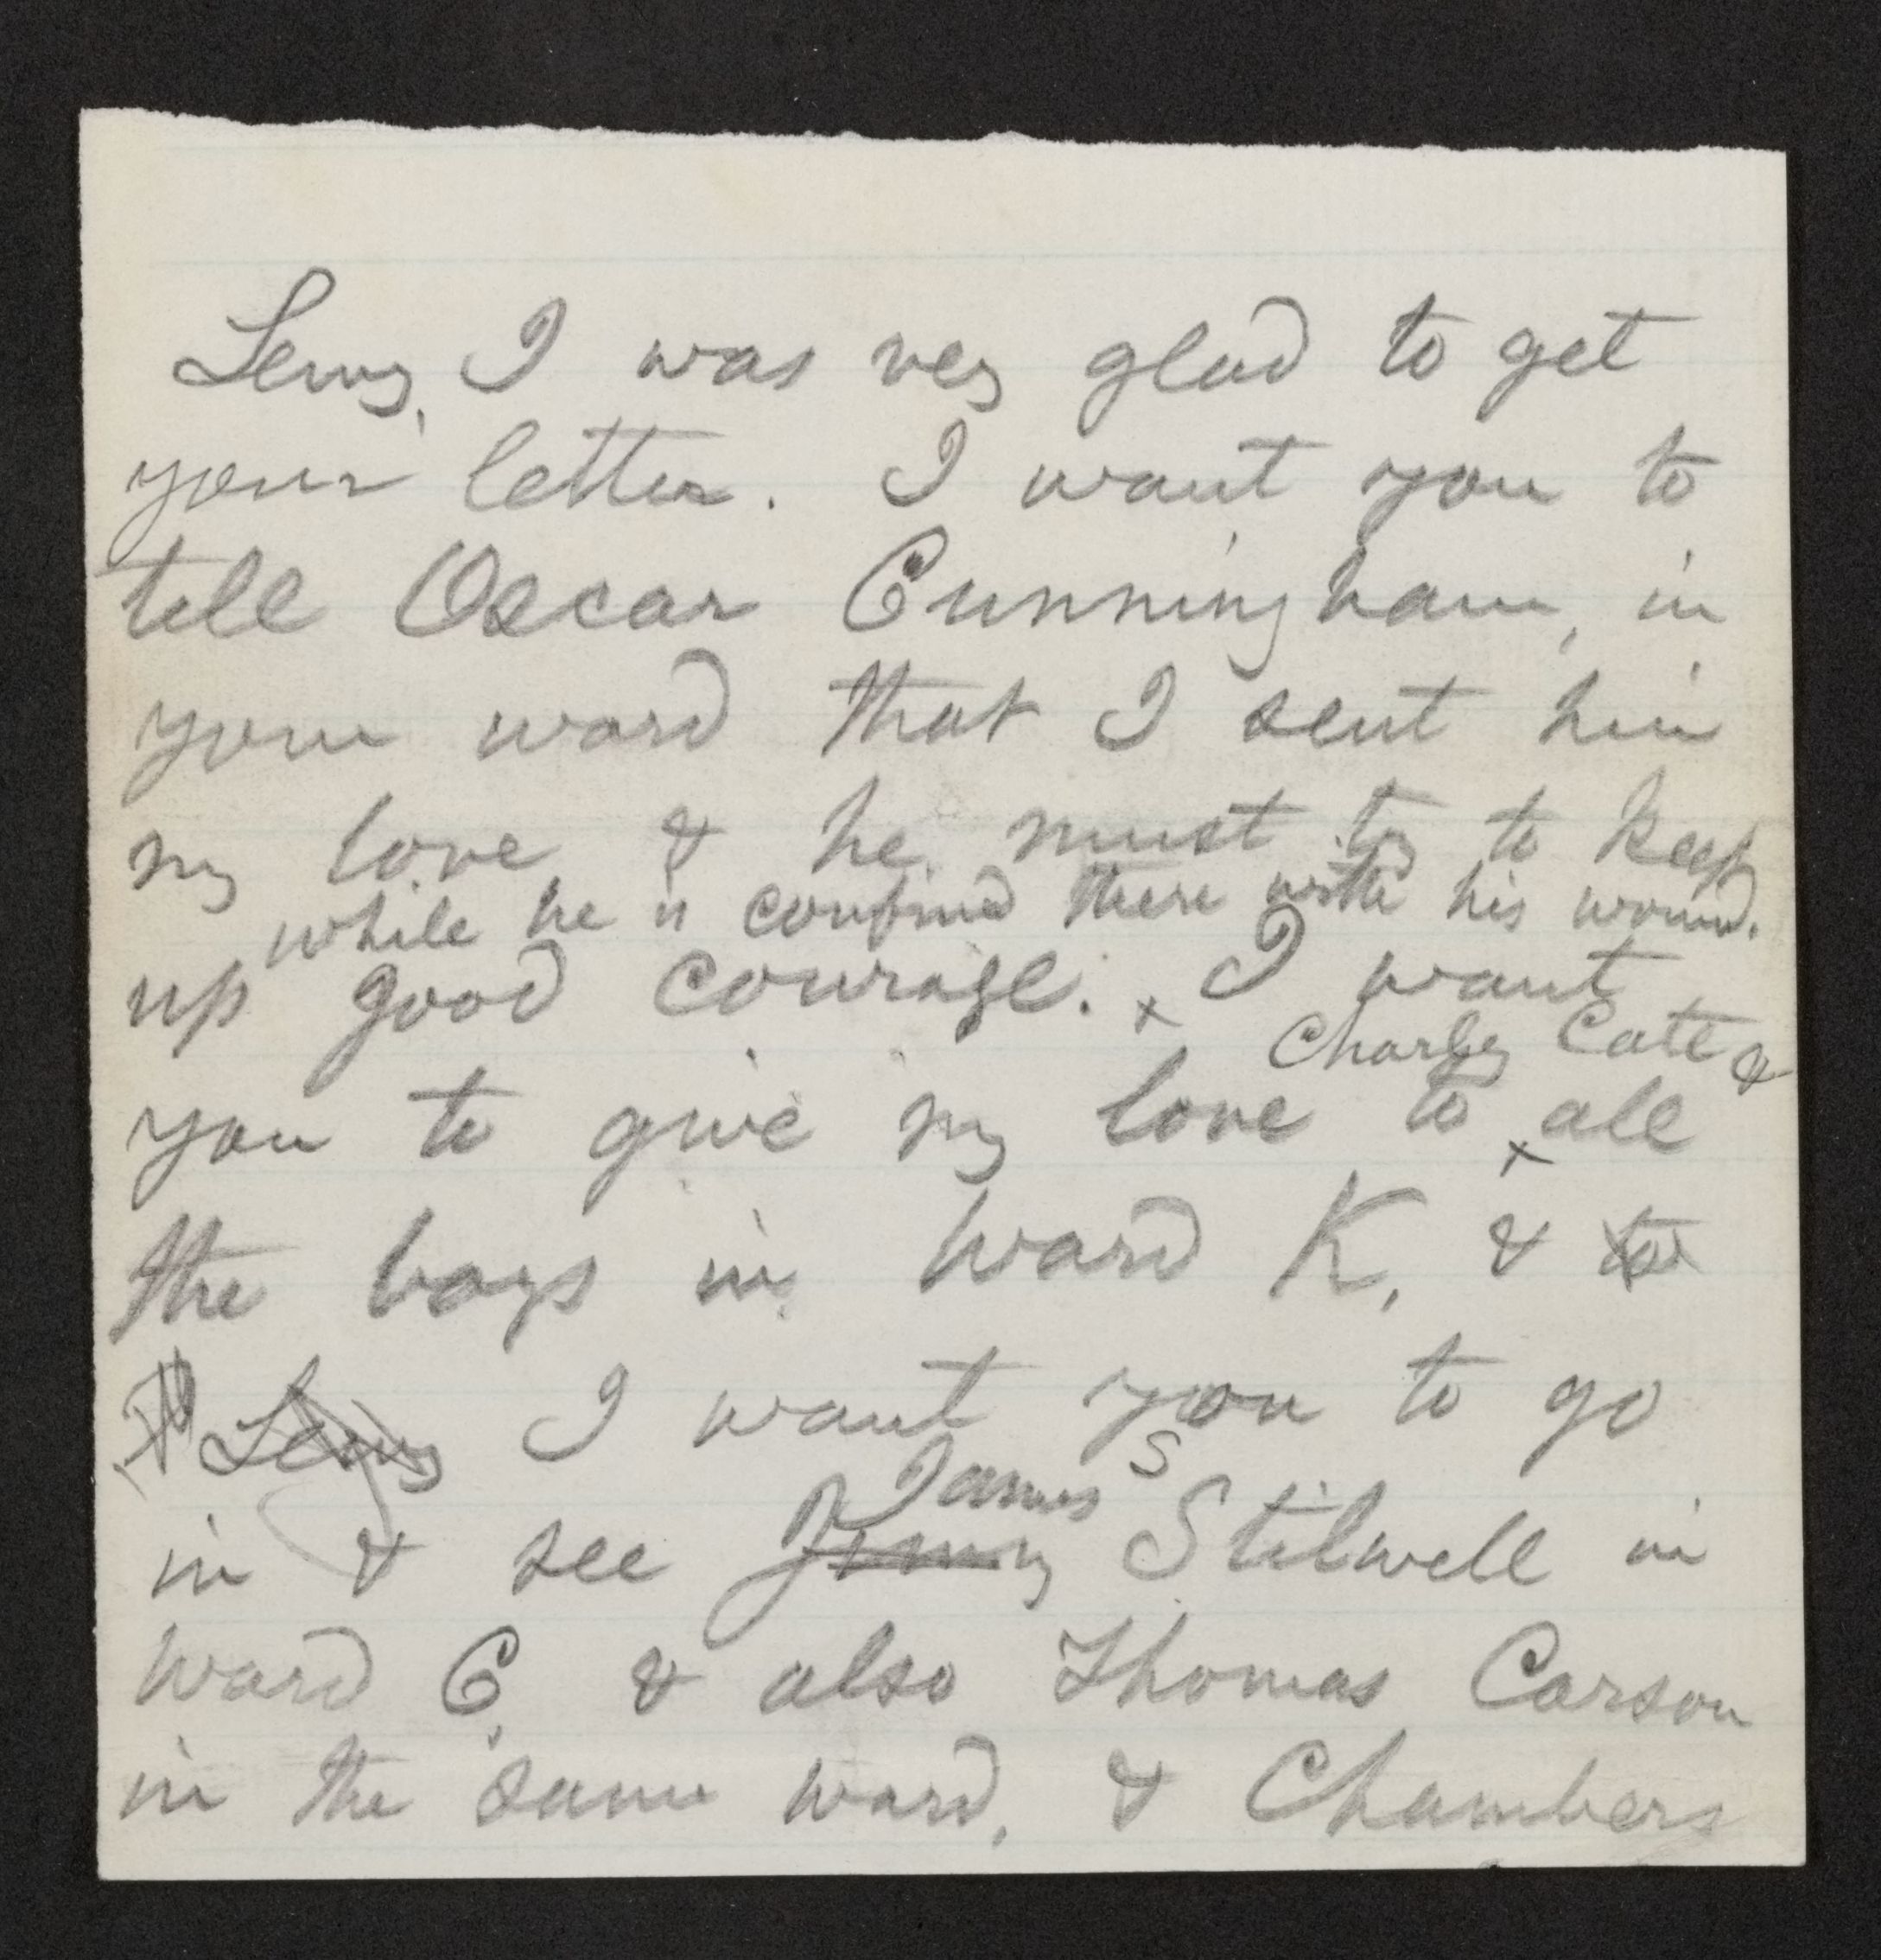 Lewy, I was very glad to get
your letter. I want you to
tell Oscar Cunningham, in
your ward that I sent him
my love & he must try to keep
while he is confined there with his wound.
up good courage. x I want
Charley Cate &
you to give my love to x all
the boys in ward K, & to
Lewy I want you to go
James S
in & see Jimmy Stilwell in
ward C & also Thomas Carson
in the same ward, & Chambers